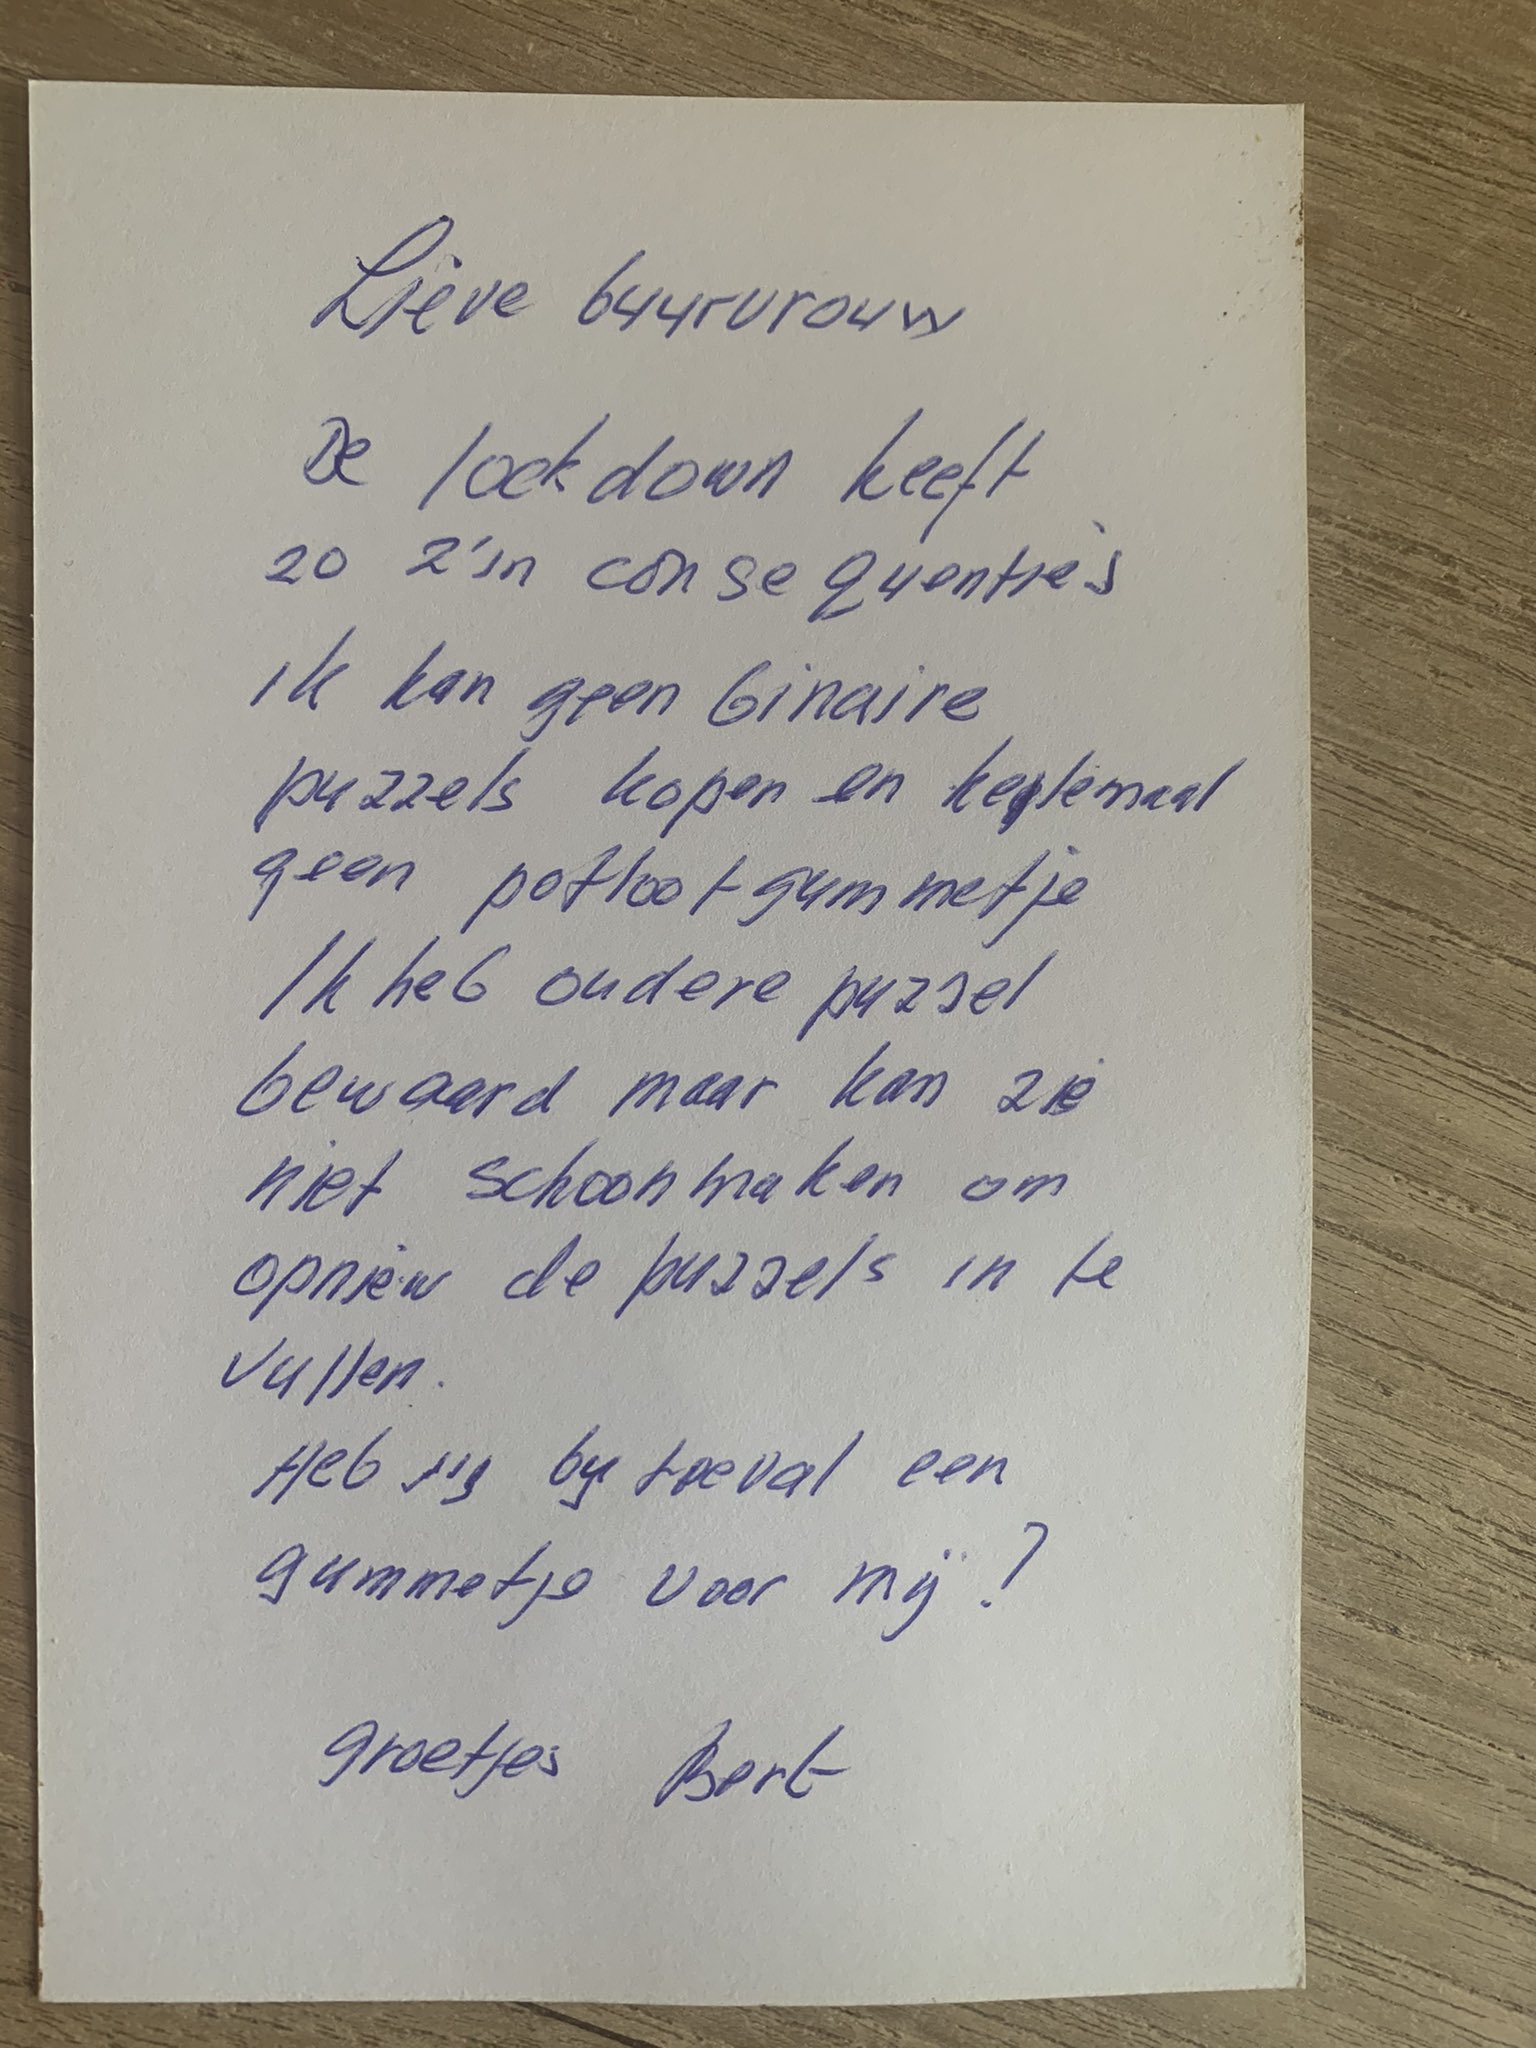 Lieve buurvrouw
De lockdown heeft
zo z'in consequenties
ik kan geen binaire
puzzels kopen en heelemaal
geen potlootgummetje
Ik heb oudere puzzel
bewaard maar kan zie
niet schoonmaken om
opniew de puzzels in te
vullen.
Heb jij by toeval een
gummetje voor mij?
groetjes Bert